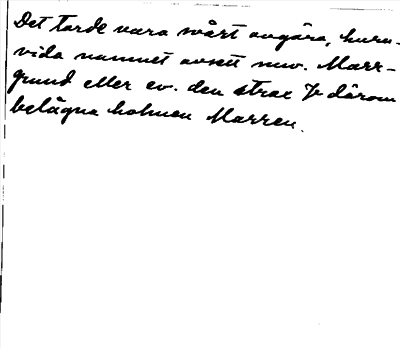 Det torde vara svårt avgöra, huru-
vida namnet avsett nuv. Marr-
grund eller ev. den strax V därom
belägna holmen Marren.